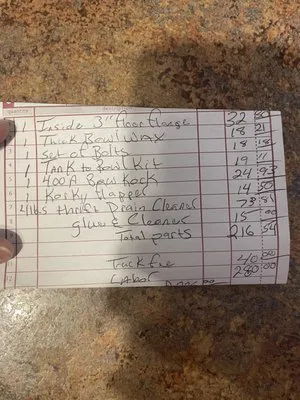 1 Inside 3" floor flange 32 50
1 Thick Bowl Wax 18 21
1 Set of Bolts 18 18
1 Tank to Bowl Kit 19 11
1 400A Baw Kock 24 93
1 Korky Flapper 14 50
4 lbs thrift Drain Cleaner 73 81
glue & Cleaner 15 00
Total parts 216 54
Truck fee 40 00
Labor 280 00